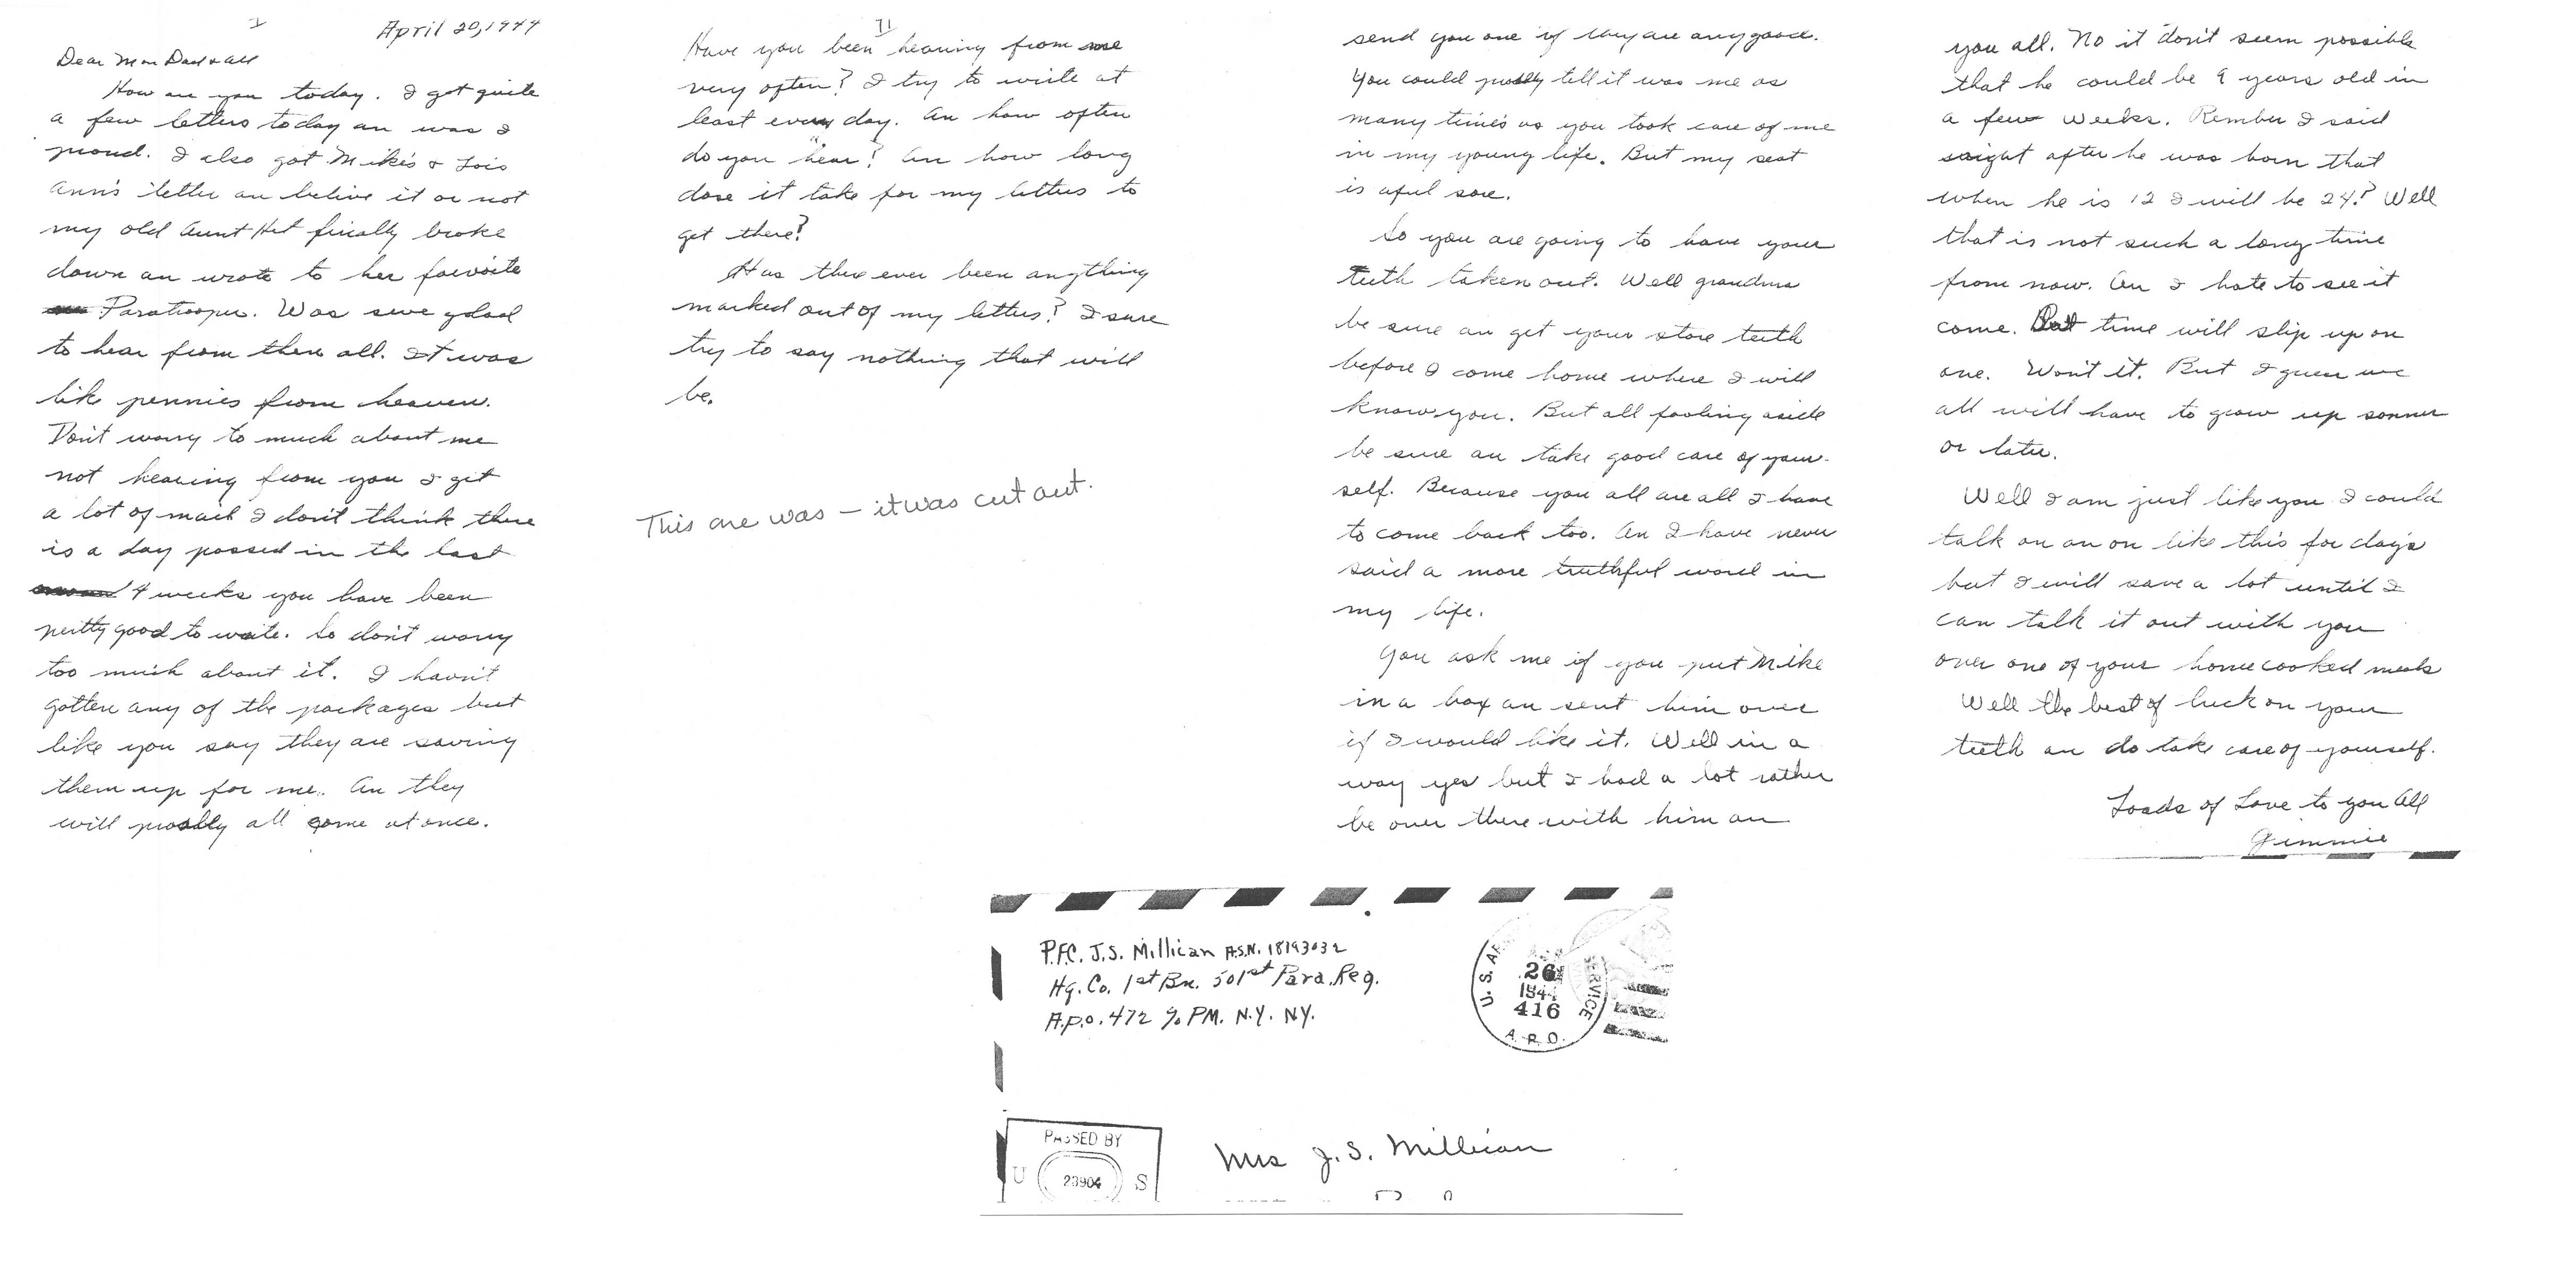 I
April 20, 1944
Dear Mom Dad & all
How are you today. I got quite
a few letters today an was I
proud. I also got Mike's & Lois
Ann's letter an belive it or not
my old Aunt Het finally broke
down an wrote to her faivoite
Paratrooper. Was sure glad
to hear from them all. It was
like pennies from heaven.
Don't worry to much about me
not hearing from you I get
a lot of mail I don't think there
is a day passed in the last
4 weeks you have been
pertty good to write. So don't worry
too much about it. I havn't
gotten any of the packages but
like you say they are saving
them up for me. An they
will probly all come at once.
II
Have you been hearing from me
very often? I try to write at
least every day. An how often
do you hear? An how long
dose it take for my letters to
get there?
Has there ever been anything
marked out of my letters? I sure
try to say nothing that will
be.
This one was - it was cut out.
send you one if they are any good.
You could probly tell it was me as
many times as you took care of me
in my young life. But my seat
is aful sore.
So you are going to have your
teeth taken out. Well grandma
be sure an get your store teeth
before I come home where I will
know you. But all fooling aside
be sure an take good care of your-
self. Because you all are all I have
to come back too. An I have never
said a more truthful word in
my life.
You ask me if you put Mike
in a box an sent him over
if I would like it. Well in a
way yes but I had a lot rather
be over there with him an
you all. No it don't seem possible
that he could be 9 years old in
a few weeks. Rember I said
right after he was born that
when he is 12 I will be 24? Well
that is not such a long time
from now. An I hate to see it
come. But time will slip up on
one. Won't it. But I guess we
all will have to grow up sonner
or later.
Well I am just like you I could
talk on an on like this for day's
but I will save a lot until I
can talk it out with you
over one of your home cooked meals
Well the best of luck on your
teeth an do take care of yourself.
Loads of Love to you All
Jimmie
P.F.C. J.S. Millican A.S.N. 18193032
Hq. Co. 1st Bn. 501st Para. Reg.
A.P.O. 472 % PM. N.Y. NY.
U.S. AR SERVICE
26
1944
416
A.P.O.
PASSED BY
U 23904 S
Mrs J. S. Millican